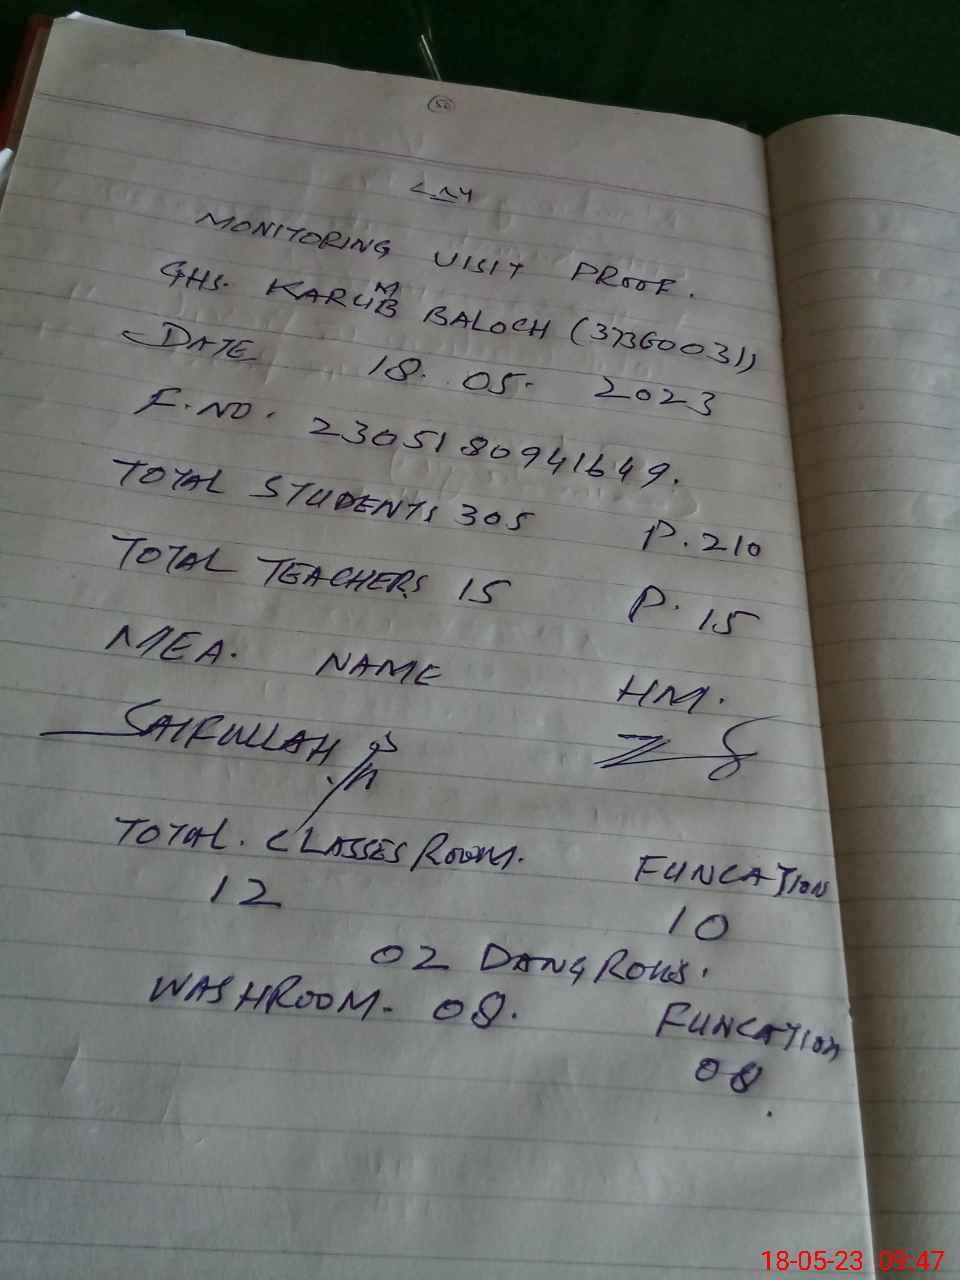 50
MONITORING VISIT PROOF.
GHS. BALOCH (37360031)
DATE 18. 05. 2023
F.NO. 2305180941649.
TOTAL STUDENTS 305 P. 210
TOTAL TEACHERS 15 P. 15
MEA. NAME HM.
SAIFULLAH
TOTAL. CLASSES ROOM. FUNCATION
12 10
02 DANGROUS.
WASHROOM. 08. FUNCATION
08.
18-05-23 09:47